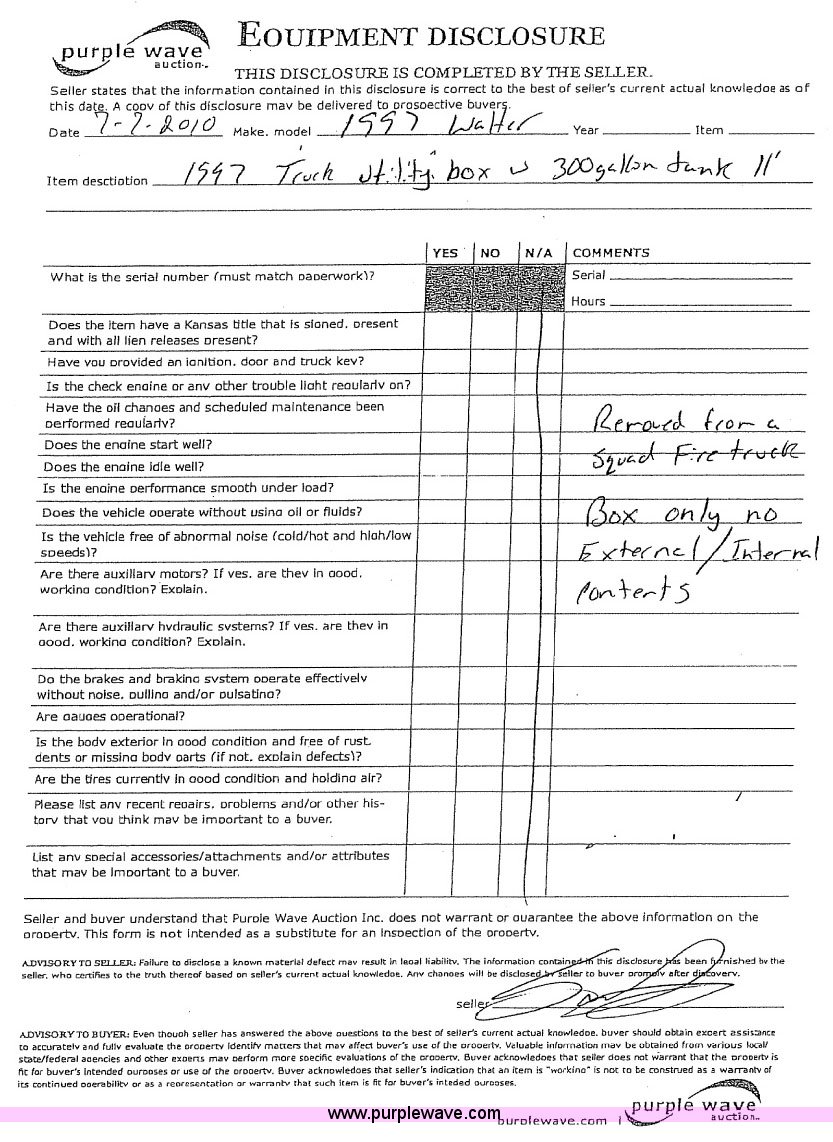 purple wave
auction™
EQUIPMENT DISCLOSURE
THIS DISCLOSURE IS COMPLETED BY THE SELLER.
Seller states that the information contained in this disclosure is correct to the best of seller's current actual knowledge as of
this date. A copy of this disclosure may be delivered to prospective buyers.
Date 7-7-2010 Make, model 1997 Walter Year Item
Item desctiption 1997 Truck utility box w 300 gallon tank 11'
YES NO N/A COMMENTS
What is the serial number (must match paperwork)? Serial
Hours
Does the item have a Kansas title that is signed, present
and with all lien releases present?
Have you provided an ignition, door and truck key?
Is the check engine or any other trouble light regularly on?
Have the oil changes and scheduled maintenance been
performed regularly? Removed from a
Does the engine start well?
Does the engine idle well? Squad Fire truck
Is the engine performance smooth under load?
Does the vehicle operate without using oil or fluids? Box only no
Is the vehicle free of abnormal noise (cold/hot and high/low
speeds)? External/Internal
Are there auxiliary motors? If yes, are they in good,
working condition? Explain. contents
Are there auxiliary hydraulic systems? If yes, are they in
good, working condition? Explain.
Do the brakes and braking system operate effectively
without noise, pulling and/or pulsating?
Are gauges operational?
Is the body exterior in good condition and free of rust,
dents or missing body parts (if not, explain defects)?
Are the tires currently in good condition and holding air?
Please list any recent repairs, problems and/or other his-
tory that you think may be important to a buyer.
List any special accessories/attachments and/or attributes
that may be important to a buyer.
Seller and buyer understand that Purple Wave Auction Inc. does not warrant or guarantee the above information on the
property. This form is not intended as a substitute for an inspection of the property.
ADVISORY TO SELLER: Failure to disclose a known material defect may result in legal liability. The information contained in this disclosure has been furnished by the
seller, who certifies to the truth thereof based on seller's current actual knowledge. Any changes will be disclosed by seller to buyer promply after discovery.
seller
ADVISORY TO BUYER: Even though seller has answered the above questions to the best of seller's current actual knowledge, buyer should obtain expert assistance
to accurately and fully evaluate the property identify matters that may affect buyer's use of the property. Valuable information may be obtained from various local/
state/federal agencies and other experts may perform more specific evaluations of the property. Buyer acknowledges that seller does not warrant that the property is
fit for buyer's intended purposes or use of the property. Buyer acknowledges that seller's indication that an item is "working" is not to be construed as a warranty of
its continued operability or as a representation or warranty that such item is fit for buyer's inteded purposes.
purple wave
auction™
www.purplewave.com
purplewave.com |